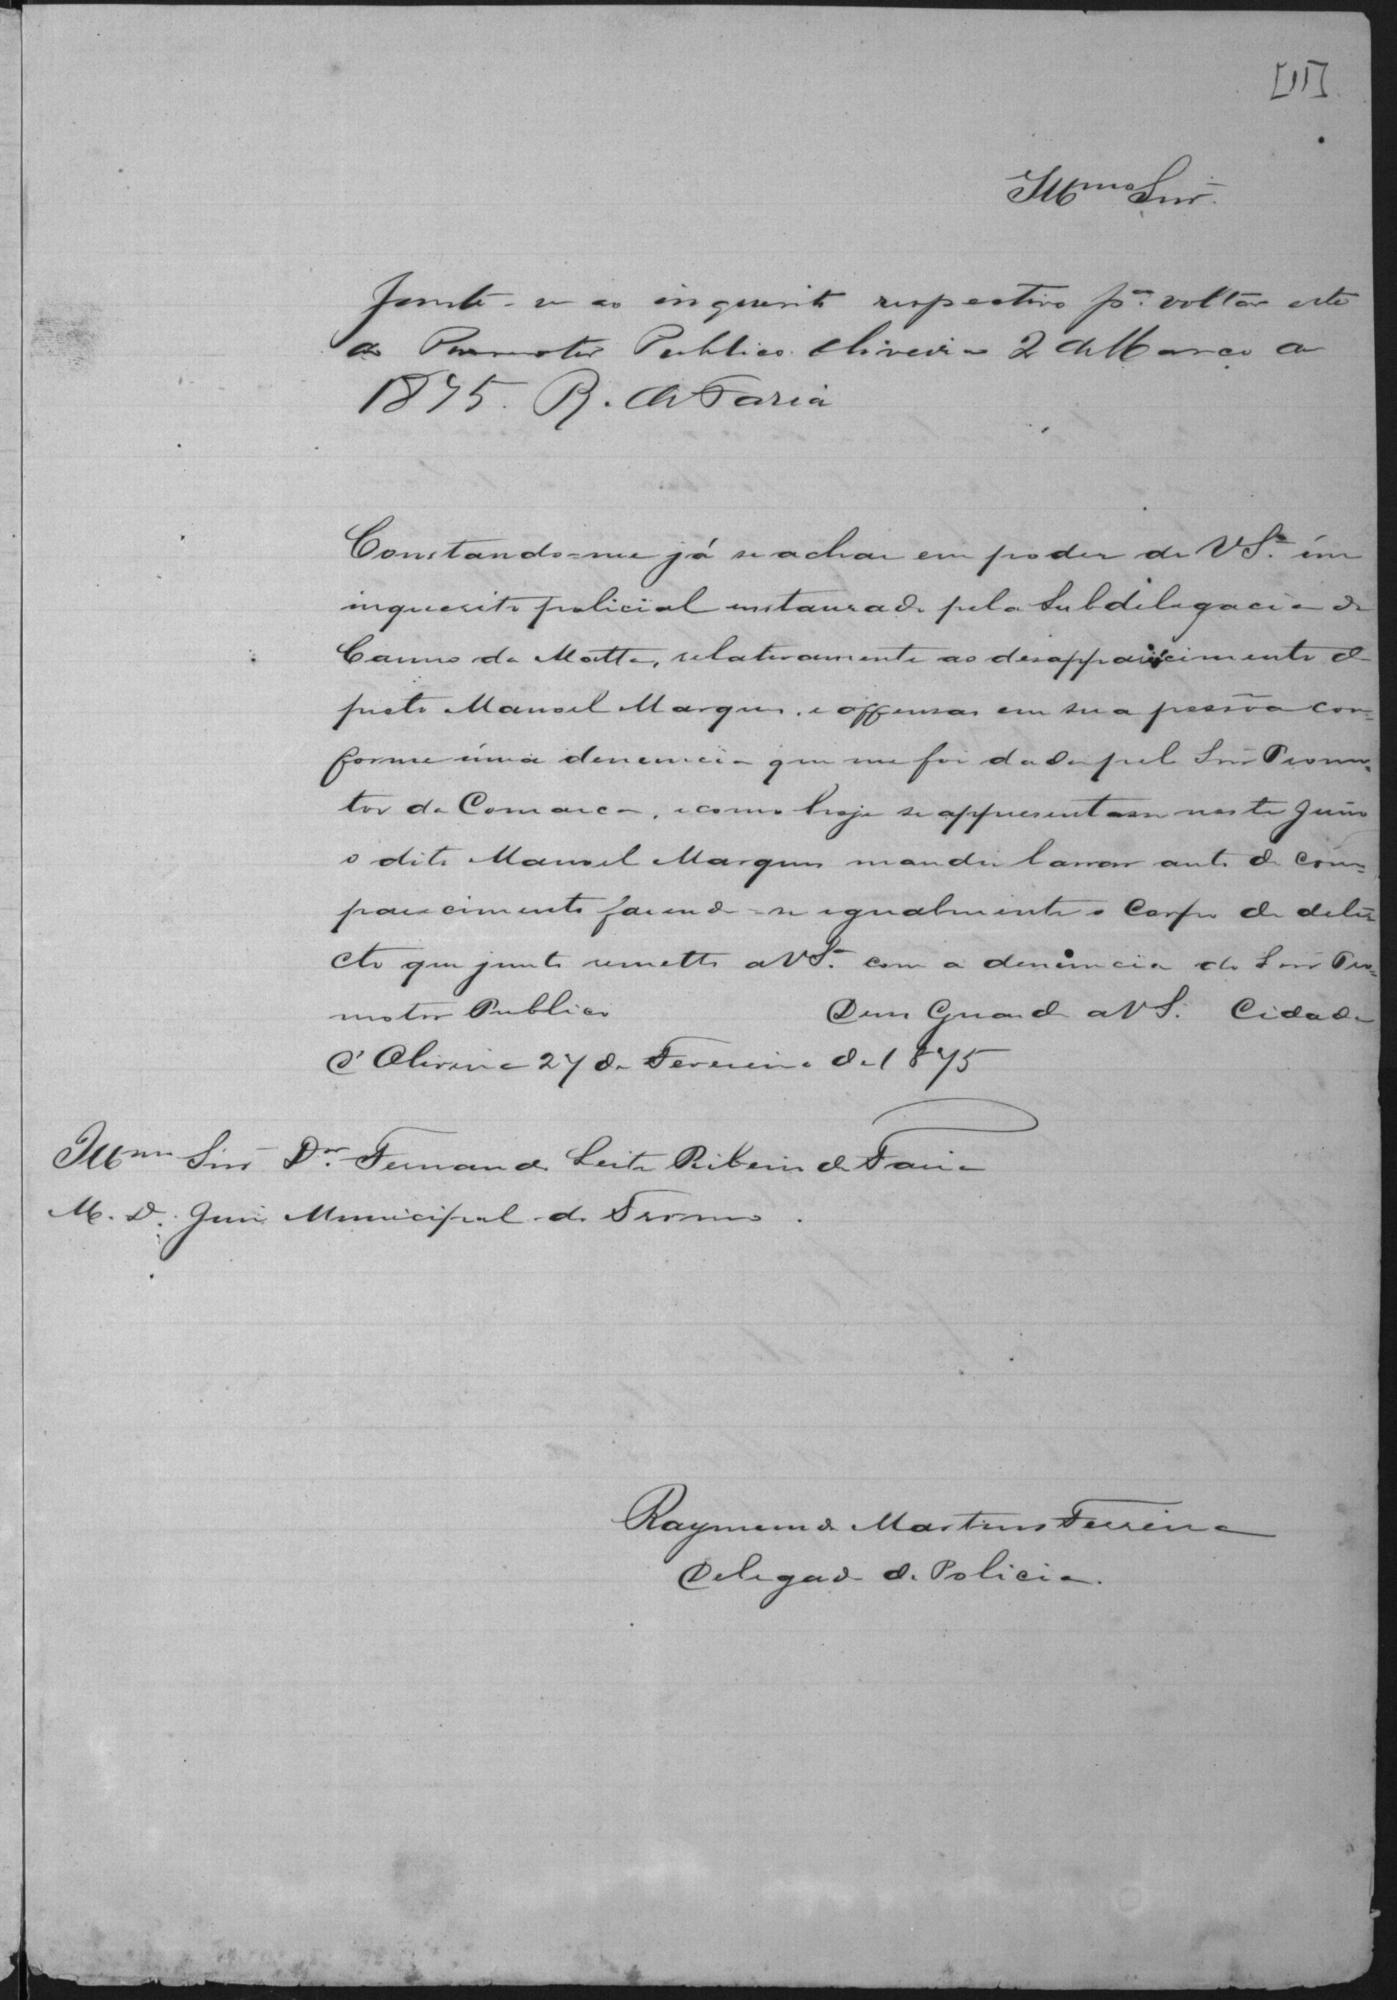 [11]
Illmo Snr.
Junte-se ao inquerito respectivo pa. voltar este
ao Promotor Publico. Oliveira 2 de Março de
1875. R. de Faria
Constando-me já se achar em poder de VSa. úm
inquerito policial instaurado pela Subdelegacia do
Carmo da Matta, relativamente ao desapparicimento do
preto Manoel Marques, e offensas em sua pessôa con=
forme úma denuncia que me foi dada pelo Snr Promo=
tor da Comarca, e como hoje se appresentasse neste Juiso
o dito Manoel Marques mandei lavrar auto de com=
parecimento fasendo-se igualmente o Corpo de deli
cto que junto remetto a VSa. com a denúncia do Snr Pro=
motor Publico Deus Guarde a VS. Cidade
d'Oliveira 27 de Fevereiro de 1875
Illmo Snr Dr. Fernando Leite Ribeiro de Faria
M. D. Juis Municipal do Termo.
Raymundo Martins Ferreira
Delegado de Policia.